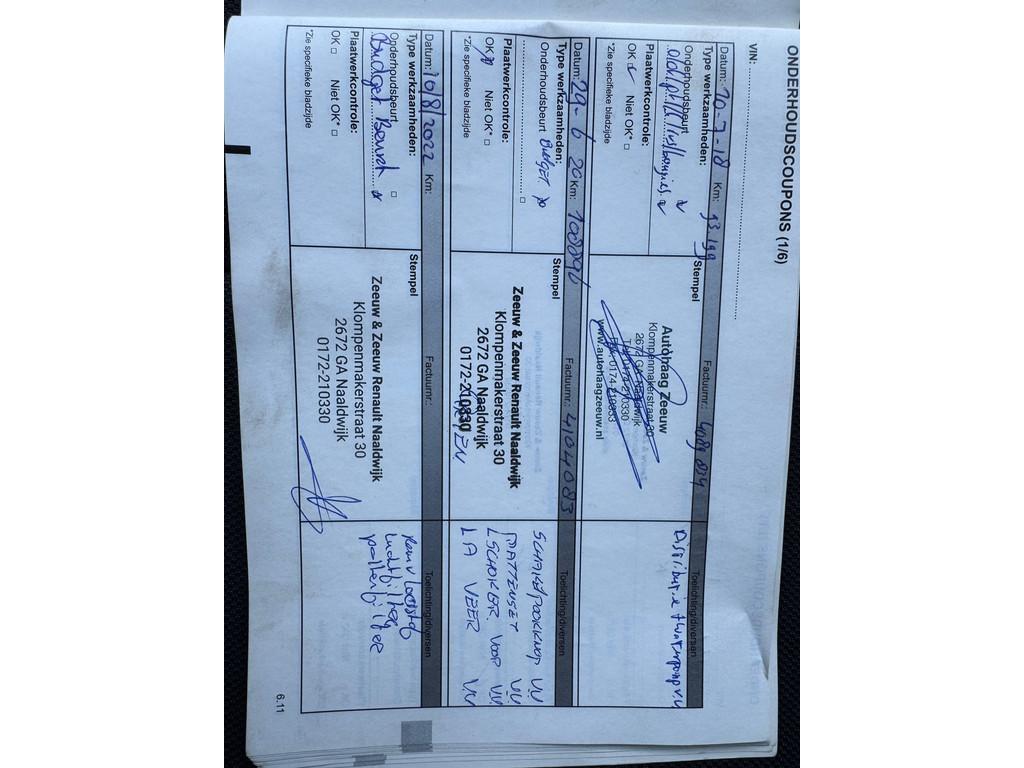 ONDERHOUDSCOUPONS (1/6)
VIN:
Datum: 20-7-18 Km: 93.199 Factuurnr.: 4089 834
Type werkzaamheden: Stempel Toelichting/diversen
Onderhoudsbeurt
Plaatwerkcontrole:
OK Niet OK* □
*Zie specifieke bladzijde
Autohaag Zeeuw
Klompenmakerstraat 30
2672 GA Naaldwijk
Tel. 0174-210330
Fax. 0174-210333
www.autohaagzeeuw.nl
Distributie + waterpomp v.v
Datum: 29-6 20 Km: 108896 Factuurnr.: 4104083
Type werkzaamheden: Stempel Toelichting/diversen
Onderhoudsbeurt Budget
□
Plaatwerkcontrole:
OK Niet OK* □
*Zie specifieke bladzijde
Zeeuw & Zeeuw Renault Naaldwijk
Klompenmakerstraat 30
2672 GA Naaldwijk
0172-210330
SCHAKELPOOKKNOP VV
MATTENSET VV
SCHOKER VOOR VV
LA VEER VV
Datum: 10/8/2022 Km: Factuurnr.: Toelichting/diversen
Type werkzaamheden: Stempel
Onderhoudsbeurt □
Budget Beurt
Plaatwerkcontrole:
OK □ Niet OK* □
*Zie specifieke bladzijde
Zeeuw & Zeeuw Renault Naaldwijk
Klompenmakerstraat 30
2672 GA Naaldwijk
0172-210330
Remvloeistof
luchtfilter
pollenfilter
6.11